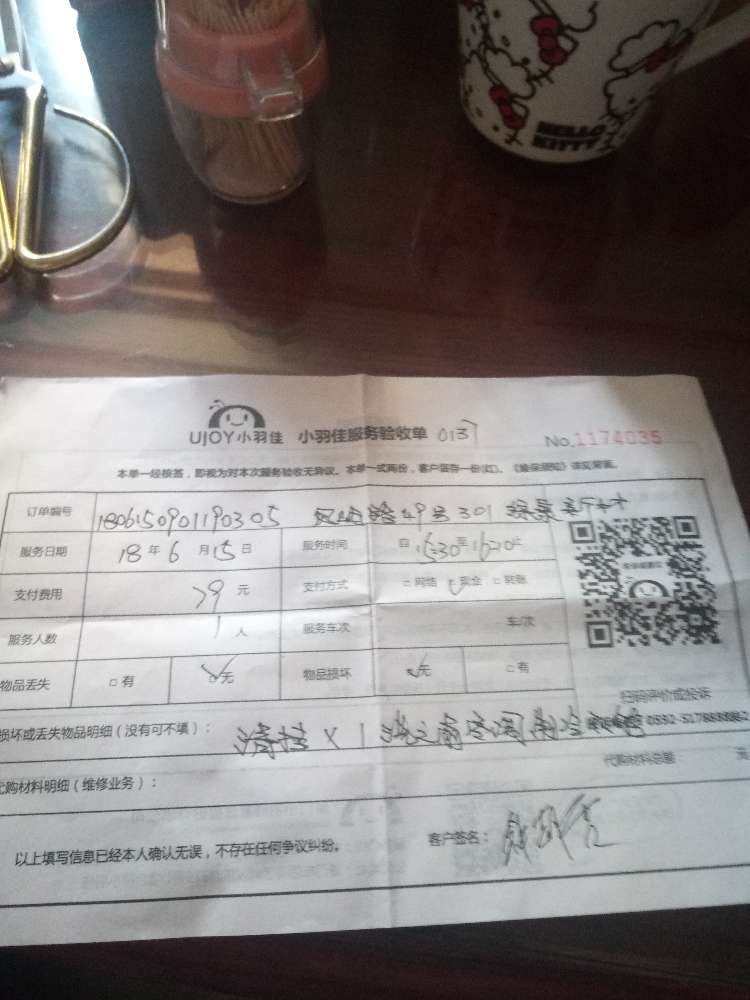 HELLO
KITTY
UJOY小羽佳 小羽佳服务验收单 0137 No.1174035
本单一经核签，即视为对本次服务验收无异议。本单一式两份，客户留存一份(红)。
订单编号 1806150901190305 49号301
服务日期 18年6月15日 服务时间 自1530至1620止
支付费用 79元 支付方式 □网络 现金 □转账
服务人数 1人 服务车次 车/次
物品丢失 □有 □无 物品损坏 □无 □有
扫码评价或投诉
损坏或丢失物品明细（没有可不填）： 清挂X1 洗之前空调制冷
代购材料总额 元
代购材料明细（维修业务）：
以上填写信息已经本人确认无误，不存在任何争议纠纷。 客户签名：